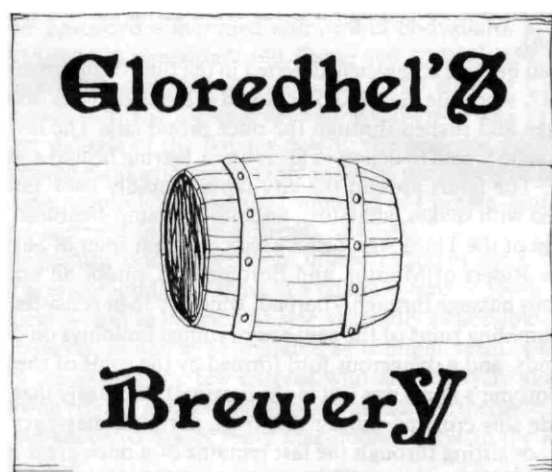 Gloredhel's
Brewery